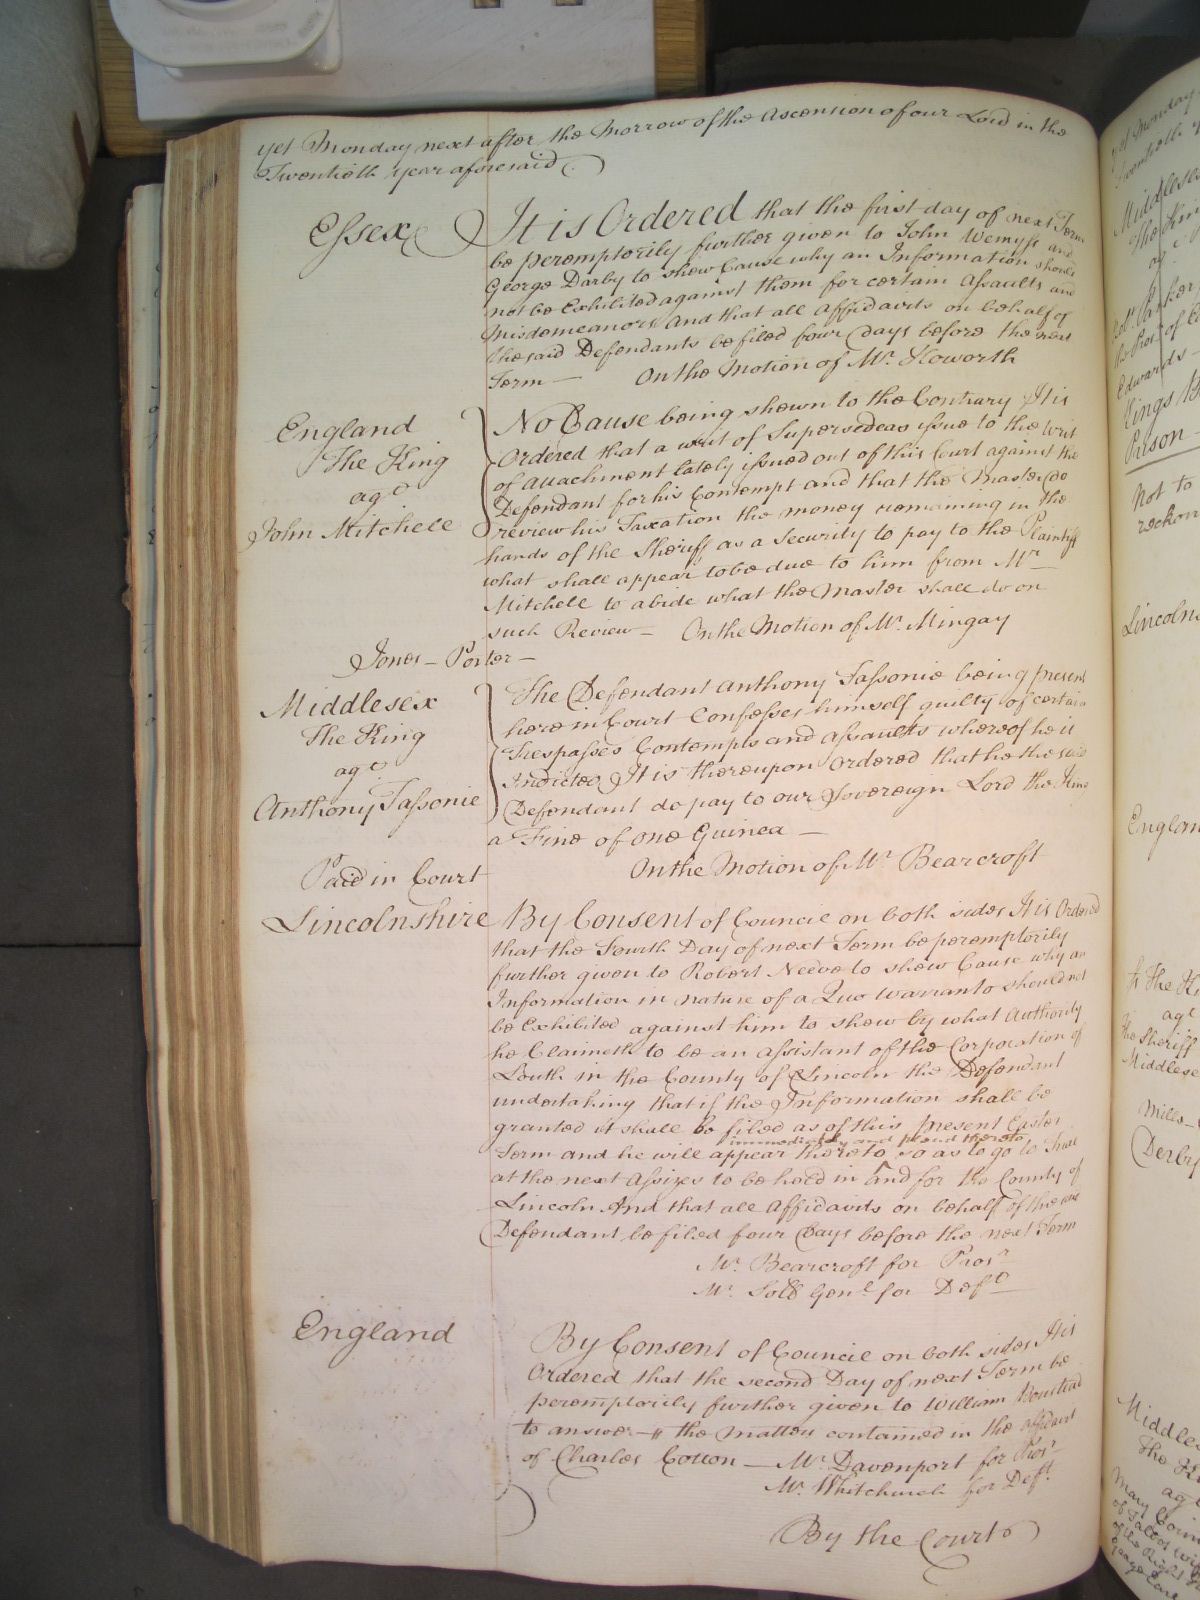 yet Monday next after the Morrow of the Ascension of our Lord in the
Twentieth year aforesaid
Essex
It is Ordered that the first day of next Term
be peremptorily further given to John Wemyss and
George Darby to shew Cause why an Information should
not be Exhibited against them for certain Assaults and
Misdemeanors And that all Affidavits on behalf of
the said Defendants be filed four Days before the next
Term — On the Motion of Mr. Howorth
England
The King
agt
John Mitchell
No Cause being shewn to the Contrary It is
Ordered that a writ of Supersedeas issue to the Writ
of Attachment lately issued out of this Court against the
Defendant for his Contempt and that the Master do
review his Taxation the money remaining in the
hands of the Sheriff as a Security to pay to the Plaintiff
what shall appear to be due to him from Mr
Mitchell to abide what the Master shall do on
such Review — On the Motion of Mr. Mingay
Jones — Porter —
Middlesex
The King
agt
Anthony Tassonie
The Defendant Anthony Tassonie being present
here in Court Confesses himself guilty of certain
Trespasses Contempts and Assaults whereof he is
Indicted It is thereupon Ordered that he the said
Defendant do pay to our Sovereign Lord the King
a Fine of one Guinea —
On the Motion of Mr. Bearcroft
Paid in Court
Lincolnshire
By Consent of Councill on both sides It is Ordered
that the Fourth Day of next Term be peremptorily
further given to Robert Neeve to shew Cause why an
Information in nature of a Quo Warranto should not
be Exhibited against him to shew by what Authority
he Claimeth to be an Assistant of the Corporation of
Louth in the County of Lincoln the Defendant
undertaking that if the Information shall be
granted it shall be filed as of this present Easter
immediately and plead thereto
Term and he will appear thereto so as to go to Trial
at the next Assizes to be held in and for the County of
Lincoln And that all Affidavits on behalf of the said
Defendant be filed four Days before the next Term
Mr. Bearcroft for Prosr
Mr. Sollr Genl for Deft
England
By Consent of Councill on both sides It is
Ordered that the second Day of next Term be
peremptorily further given to William Boustead
to answer the matters contained in the Affidavit
of Charles Cotton — Mr. Davenport for Prosr
Mr. Whitchurch for Deft.
By the Court
Kings B
Prison
Not to
reckon
Lincolns
Englan
agt
the Sheriff
Middlese
Mills
Derby
Middles
The Ki
agt